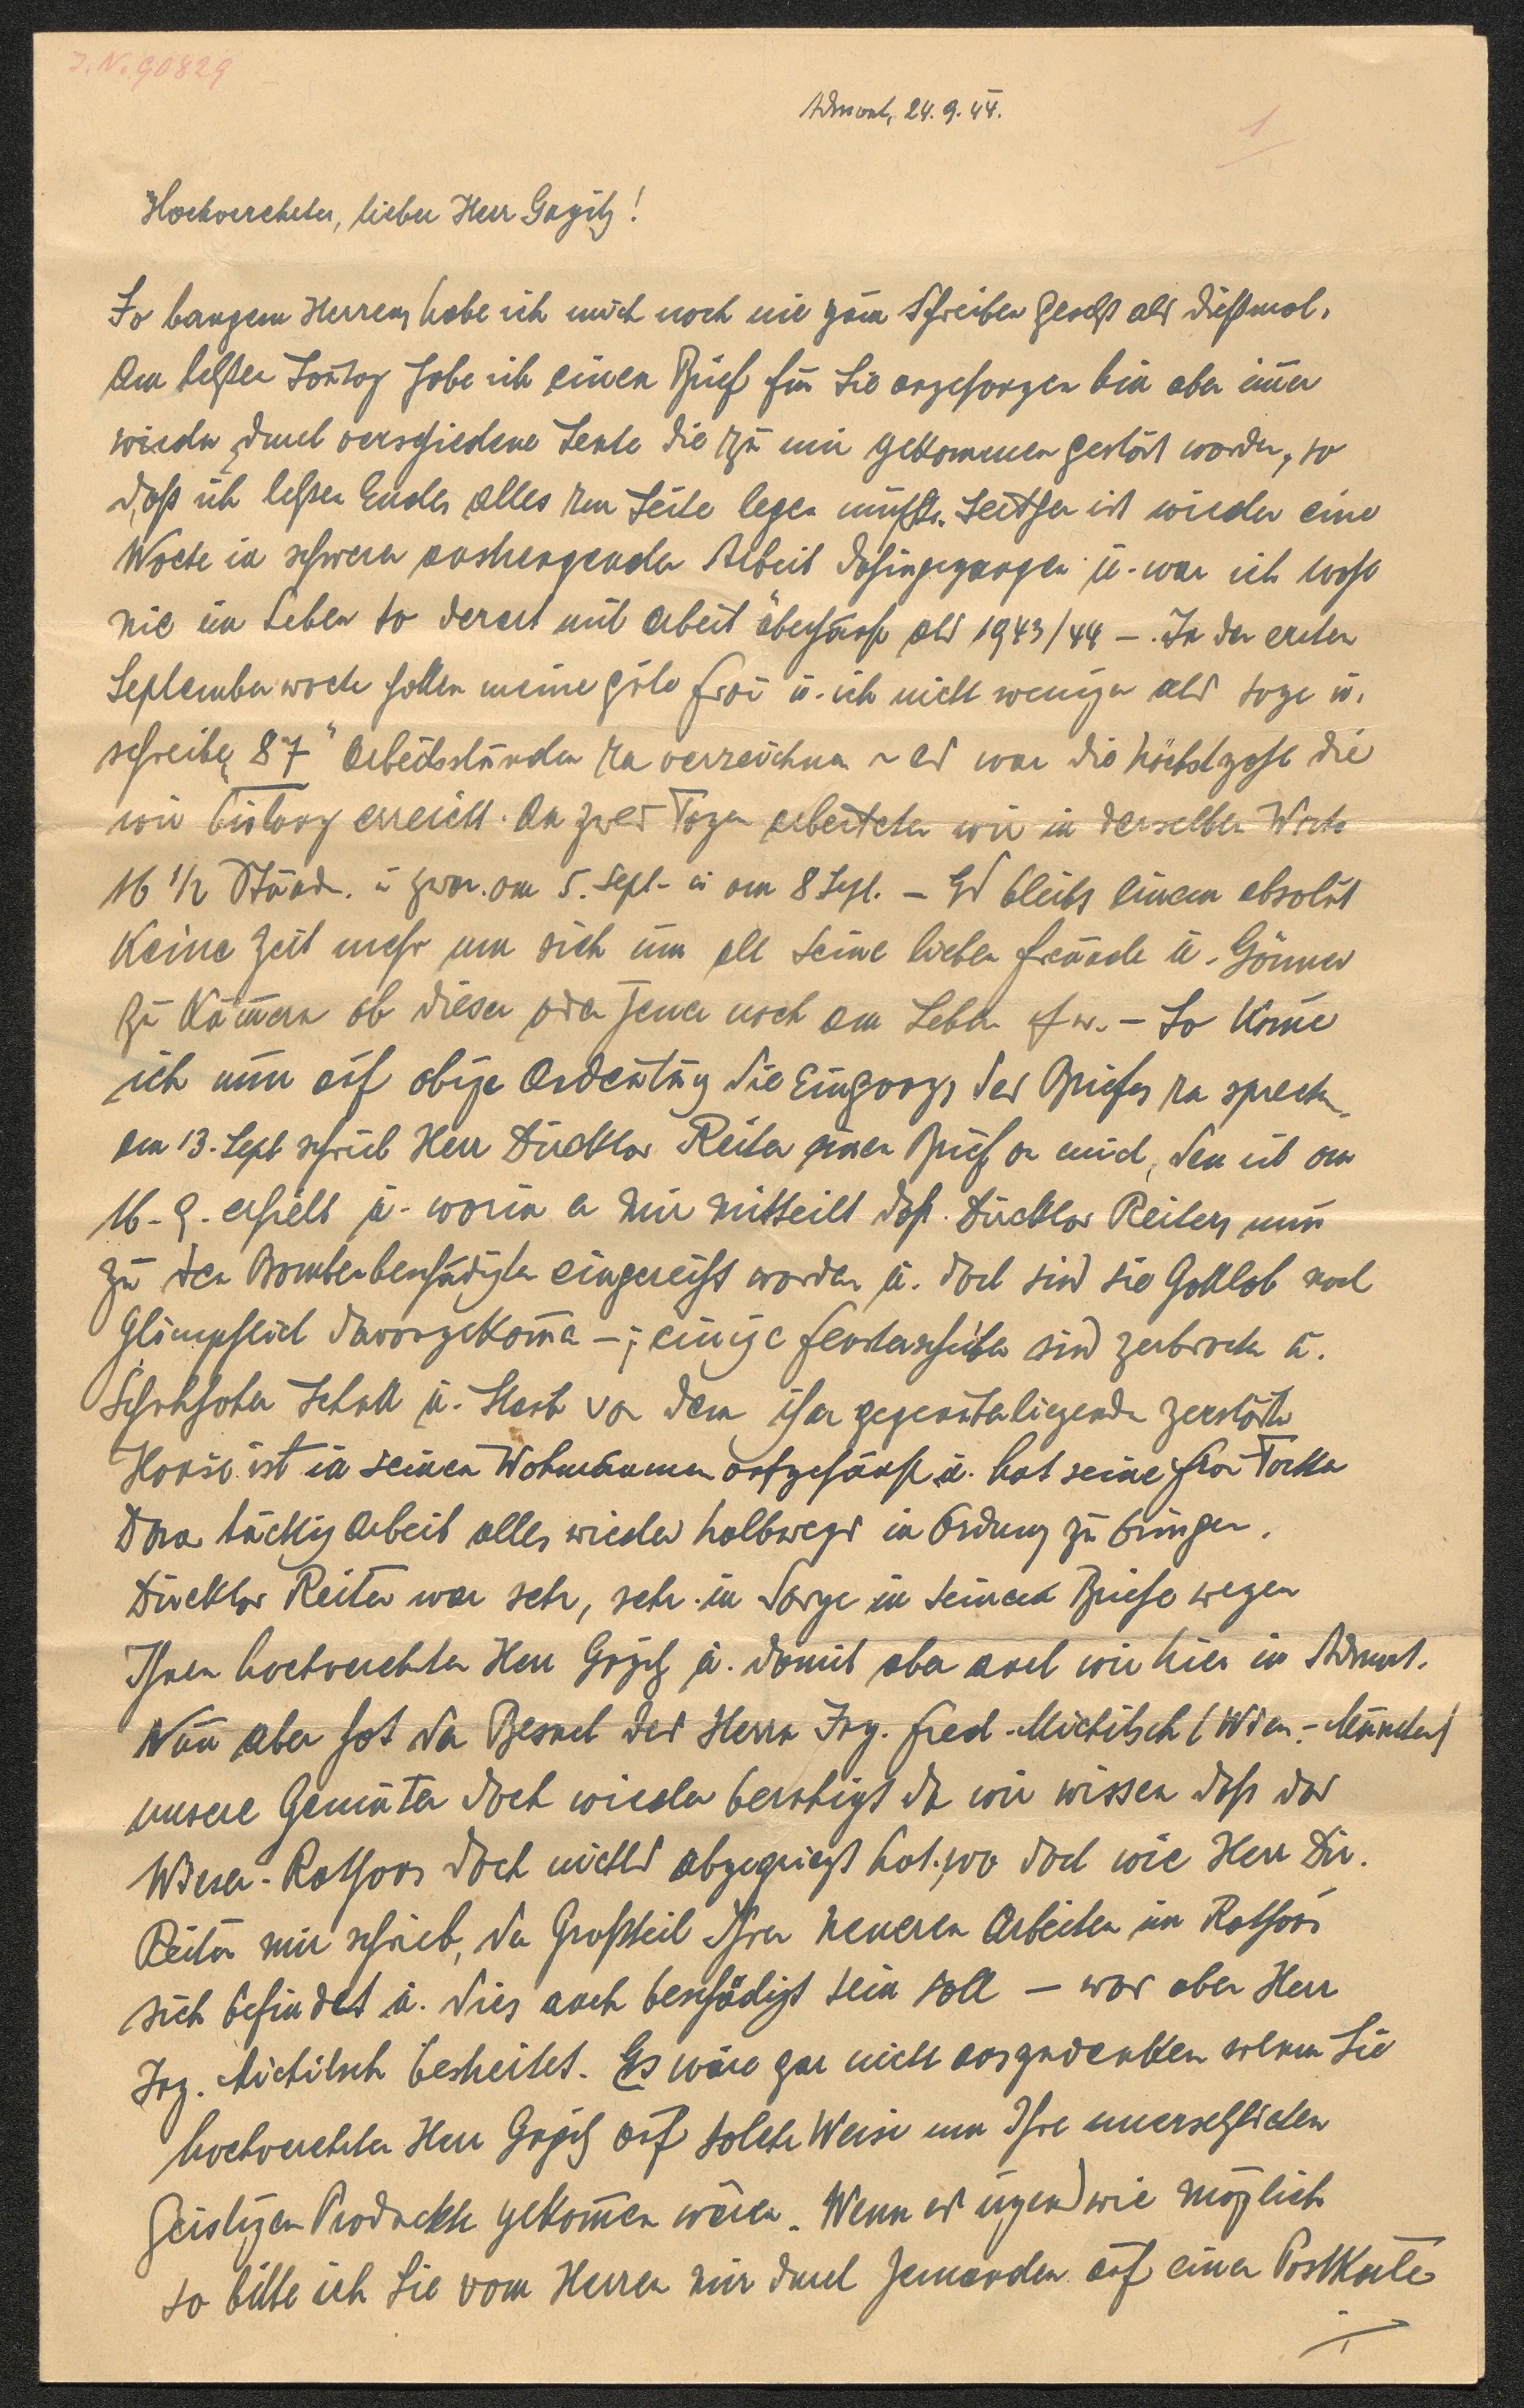 J. N. 90829
Admont, 24. 9. 44.
1
Hochverehrter, lieber Herr Gugitz!
So bangem Herzens habe ich mich noch nie zum Schreiben gesetzt als diesmal.
Am letzten Sontag habe ich einen Brief für Sie angefangen bin aber immer
wieder durch verschiedene Leute die zu mir gekommen gestört worden, so
daß ich letzten Endes alles zur Seite legen mußte. Seither ist wieder eine
Woche in schwerer anstrengender Arbeit dahingegangen u. war ich wohl
nie im Leben so derart mit Arbeit überhäuft als 1943/44 –. In der ersten
Septemberwoche hatten meine gute Frau u. ich nicht weniger als sage u.
schreibe „87" Arbeitsstunden zu verzeichnen ~ es war die höchstzahl die
wir bislang erreicht. An zwei Tagen arbeiteten wir in derselben Woche
16 1/2 Stund. u zwar. am 5. Sept. u am 8 Sept. – Es bleibt einem absolut
keine Zeit mehr um sich um all seine lieben Freunde u. Gönner
zu kümern ob dieser oder jener noch am Leben – So kome
ich nun auf obige Andeutung die Eingangs des Briefes zu sprechen
am 13. Sept schrieb Herr Direcktor Reiter einen Brief an mich, den ich am
16. 9. erhielt u. worin er mir mitteilt daß. Direcktor Reiters nun
zu den Bombenbeschädigten eingereiht worden u. doch sind sie Gottlob noch
Glimpflich davongekomen –; einige Fensterscheiben sind zerbrochen u.
Schuhhoher Schutt u. Staub von dem ihm gegenüberliegenden zerstörten
Hause ist in seinen Wohnräumen aufgehäuft u. hat seine Frau Tochter
Dora tüchtig Arbeit alles wieder halbwegs in Ordnung zu bringen.
Direcktor Reiter war sehr, sehr in Sorge in seinem Briefe wegen
Ihnen hochverehrter Herr Gugitz u. damit aber auch wir hier in Admont.
Nun aber hat der Besuch des Herrn Ing. Fred. Michitsch (Wien.-München)
unsere Gemüter doch wieder beruhigt da wir wissen daß das
Wiener-Rathaus doch nichts abgekriegt hat, wo doch wie Herr Dir.
Reiter mir schrieb, der Großteil Ihrer neueren Arbeiten im Rathaus
sich befindet u. dies auch beschädigt sein soll – was aber Herr
Ing. Michitsch bestreitet. Es wäre gar nicht auszudenken wenn Sie
hochverehrter Herr Gugitz auf solche Weise um Ihre unersetzlichen
Geistigen Produckte gekommen wären. Wenn es irgendwie möglich
so bitte ich Sie vom Herzen mir durch jemanden auf einer Postkarte